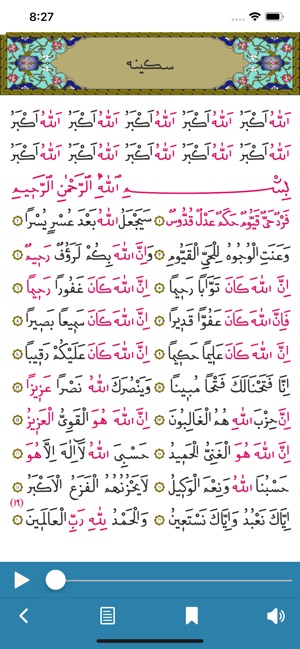 8:27
سكينه
اَللّٰهُ اَكْبَرُ اَللّٰهُ اَكْبَرُ اَللّٰهُ اَكْبَرُ اَللّٰهُ اَكْبَرُ اَللّٰهُ اَكْبَرُ
اَللّٰهُ اَكْبَرُ اَللّٰهُ اَكْبَرُ اَللّٰهُ اَكْبَرُ اَللّٰهُ اَكْبَرُ اَللّٰهُ اَكْبَرُ
بِسْمِ اللّٰهِ الرَّحْمٰنِ الرَّحِيمِ
فَرْدٌ حَىٌّ قَيُّومٌ حَكَمٌ عَدْلٌ قُدُّوسٌ ۞ سَيَجْعَلُ اللّٰهُ بَعْدَ عُسْرٍ يُسْرًا ۞
وَعَنَتِ الْوُجُوهُ لِلْحَيِّ الْقَيُّومِ ۞ وَاِنَّ اللّٰهَ بِكُمْ لَرَؤُفٌ رَحِيمٌ ۞
اِنَّ اللّٰهَ كَانَ تَوَّابًا رَحِيمًا ۞ اِنَّ اللّٰهَ كَانَ غَفُورًا رَحِيمًا ۞
فَاِنَّ اللّٰهَ كَانَ عَفُوًّا قَدِيرًا ۞ اِنَّ اللّٰهَ كَانَ سَمِيعًا بَصِيرًا ۞
اِنَّ اللّٰهَ كَانَ عَلِيمًا حَكِيمًا ۞ اِنَّ اللّٰهَ كَانَ عَلَيْكُمْ رَقِيبًا ۞
اِنَّا فَتَحْنَا لَكَ فَتْحًا مُبِينًا ۞ وَيَنْصُرَكَ اللّٰهُ نَصْرًا عَزِيزًا ۞
اِنَّ حِزْبَ اللّٰهِ هُمُ الْغَالِبُونَ ۞ اِنَّ اللّٰهَ هُوَ الْقَوِىُّ الْعَزِيزُ ۞
اِنَّ اللّٰهَ هُوَ الْغَنِىُّ الْحَمِيدُ ۞ حَسْبِىَ اللّٰهُ لَا اِلٰهَ اِلَّا هُوَ ۞
حَسْبُنَا اللّٰهُ وَنِعْمَ الْوَكِيلُ ۞ لَا يَحْزُنُهُمُ الْفَزَعُ الْاَكْبَرُ ۞
اِيَّاكَ نَعْبُدُ وَاِيَّاكَ نَسْتَعِينُ ۞ وَالْحَمْدُ لِلّٰهِ رَبِّ الْعَالَمِينَ ۞ (١٩)